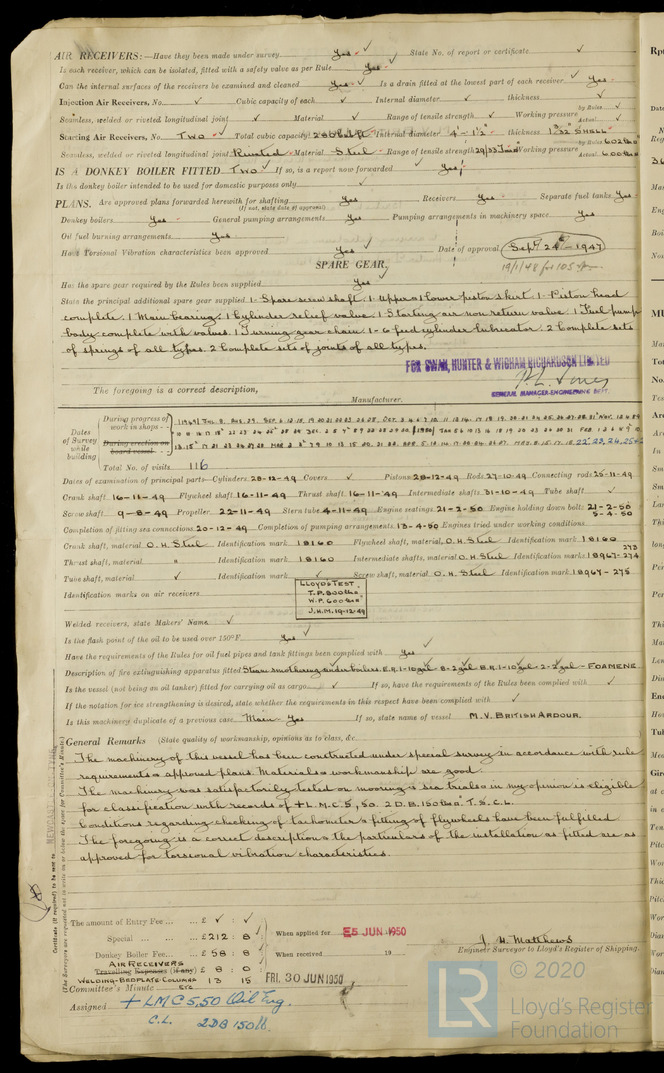 AIR RECEIVERS:—Have they been made under survey Yes ✓ State No. of report or certificate ✓
Is each receiver, which can be isolated, fitted with a safety valve as per Rule Yes ✓
Can the internal surfaces of the receivers be examined and cleaned Yes ✓ Is a drain fitted at the lowest part of each receiver Yes
Injection Air Receivers, No. ✓ Cubic capacity of each ✓ Internal diameter ✓ thickness ✓
Seamless, welded or riveted longitudinal joint ✓ Material ✓ Range of tensile strength ✓ Working pressure by Rules ✓ Actual ✓
Starting Air Receivers, No. TWO Total cubic capacity Internal diameter 4'-1½" thickness SHELL
Seamless, welded or riveted longitudinal joint Riveted Material Steel Range of tensile strength 29/33 Tons Working pressure by Rules 602 lbs Actual 600 lbs
IS A DONKEY BOILER FITTED Two ✓ If so, is a report now forwarded Yes
Is the donkey boiler intended to be used for domestic purposes only ✓
PLANS. Are approved plans forwarded herewith for shafting Yes Receivers Yes Separate fuel tanks Yes
(If not, state date of approval)
Donkey boilers Yes General pumping arrangements Yes Pumping arrangements in machinery space Yes
Oil fuel burning arrangements Yes
Have Torsional Vibration characteristics been approved Yes ✓ Date of approval Sept 24th - 1947
19/1/48 for 105
SPARE GEAR.
Has the spare gear required by the Rules been supplied Yes
State the principal additional spare gear supplied 1-Spare screw shaft. 1 Upper & lower piston skirt. 1-Piston head
complete. 1 Main bearing. 1 Cylinder relief valve. 1 Starting air non return valve. 1 Fuel pump
body complete with valves. 1 Turning gear chain. 1-6 feed cylinder lubricator. 2 Complete sets
of springs of all types. 2 Complete sets of joints of all types.
FOR SWAN, HUNTER & WIGHAM RICHARDSON LIMITED
GENERAL MANAGER-ENGINEERING DEPT.
The foregoing is a correct description,
Manufacturer.
Dates of Survey while building
During progress of work in shops - -
During erection on board vessel - - -
Total No. of visits 116
Dates of examination of principal parts—Cylinders 28-12-49 Covers ✓ Pistons 28-12-49 Rods 27-10-49 Connecting rods 25-11-49
Crank shaft 16-11-49 Flywheel shaft 16-11-49 Thrust shaft 16-11-49 Intermediate shafts 31-10-49 Tube shaft ✓
Screw shaft 9-8-49 Propeller 22-11-49 Stern tube 4-11-49 Engine seatings 21-2-50 Engine holding down bolts 21-2-50 5-4-50
Completion of fitting sea connections 20-12-49 Completion of pumping arrangements 13-4-50 Engines tried under working conditions
Crank shaft, material O.H. Steel Identification mark 18160 Flywheel shaft, material O.H. Steel Identification mark 18160
Thrust shaft, material " Identification mark 18160 Intermediate shafts, material O.H. Steel Identification mark 18967-274 273
Tube shaft, material ✓ Identification mark ✓ Screw shaft, material O.H. Steel Identification mark 18967-275
Identification marks on air receivers
LLOYD'S TEST
T.P. 900 lbs
W.P. 600 lbs
J.H.M. 19-12-49
Welded receivers, state Makers' Name ✓
Is the flash point of the oil to be used over 150°F. Yes ✓
Have the requirements of the Rules for oil fuel pipes and tank fittings been complied with Yes ✓
Description of fire extinguishing apparatus fitted Steam smothering under boilers. E.R. 1-10 gal 8-2 gal B.R. 1-10 gal 2-2 gal - FOAMENE
Is the vessel (not being an oil tanker) fitted for carrying oil as cargo ✓ If so, have the requirements of the Rules been complied with ✓
If the notation for ice strengthening is desired, state whether the requirements in this respect have been complied with ✓
Is this machinery duplicate of a previous case Main - Yes If so, state name of vessel M.V. BRITISH ARDOUR
General Remarks (State quality of workmanship, opinions as to class, &c.
The machinery of this vessel has been constructed under special survey in accordance with rule
requirements & approved plans. Materials & workmanship are good.
The machinery was satisfactorily tested on moorings & sea trials & in my opinion is eligible
for classification with records of + L.M.C. 5, 50. 2 D.B. 150 lbs. T.S. C.L.
Conditions regarding checking of tachometer & fitting of flywheels have been fulfilled
The foregoing is a correct description & the particulars of the installation as fitted are as
approved for torsional vibration characteristics.
The amount of Entry Fee ... £ ✓ : ✓
Special ... £212 : 8
Donkey Boiler Fee... £ 58 : 8
AIR RECEIVERS
Travelling Expenses (if any) £ 8 : 0
WELDING-BEDPLATE-COLUMNS ETC 13 15
When applied for 5 JUN 1950
When received 19
J. H. Matthews
Engineer Surveyor to Lloyd's Register of Shipping.
Committee's Minute FRI. 30 JUN 1950
Assigned + LMC 5,50 Oil Eng.
C.L. 2DB 150 lb.
© 2020
LR
Lloyd's Register
Foundation